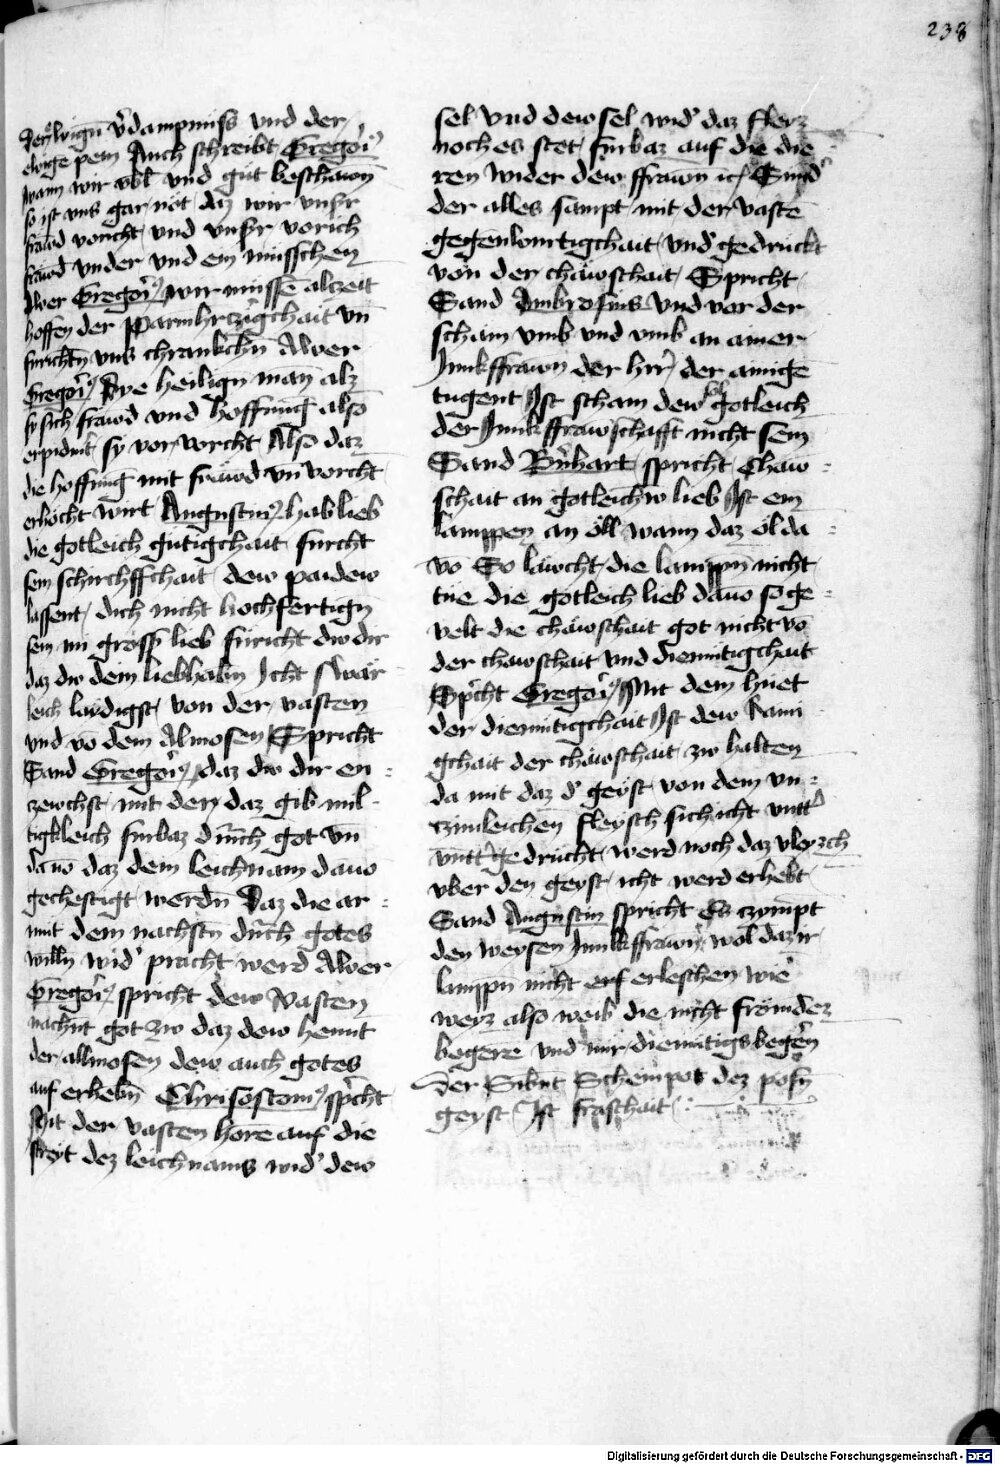 238
der ewign v̄dampnuss vnd der
ewige pein Auch schreibt Gregori9
wann wir vbl vnd gut beschawn
so ist vns gar not daz wir vnsr
frawd voricht vnd vnsr vorich
frawd vnder vnd ein mischen
Aber Gregori9 wir müssē alczeit
hoffen der Parmhrczigchait vn̄
fürichtn vns chrankchn̄ Aber
Gregori9 Dye heilign man alz
sy sich frawd vnd hoffnung also
erpidmt sy vor vorcht Also daz
die hoffnung mit frawd vn̄ vorcht
erhöcht wirt Augustin9 hab lieb
die gotleich gütigchait fürcht
sein scherffchait dew paidew
lassent dich nicht hochfertign
sein in grossr lieb füricht dw dir
daz dw dein liebhabn Icht swär
leich laydigst von der vasten
vnd vō dem Almosen Spricht
Sand Gregori9 daz dw dir en
zewchst mit den daz gib mil
tigkleich fürbaz durch got vn̄
dauō daz dem leichnam dauō
gechestigt werdn̄ Daz die ar
mit dem nachstn̄ durch gotes
willn wid' pracht werd Aber
Gregori9 spricht dew vasten
nachnt got zw daz dew hennt
der allmosen dew auch gotes
auf erhebn̄ Chrisostom9 sp'cht
Mit der vasten hōre auf die
streyt dez leichnams wid' dew
sel vnd dew sel wid' daz flerz
noch es stet fürbaz auf die die
ren wider dew ffrawn ic Sund'
der alles sampt mit der vastē
gegenburtigchait vnd gedruckt
von der chawschait Spricht
Sand Ambrosius vnd vor der
scham vmb vnd vmb an ainer
Junkffrawn der hrr̄ der ainigē
tugent Ist scham dew gotleich
der Junkffrawschafft nicht sein
Sand Brn̄hart spricht Chaw
schait an gotleichw lieb Ist ein
lamppen an öll wann daz öl da
vō So läwcht die lamppn̄ nicht
tüe die gotleich lieb dauō so ge
velt die chäwschait got nicht vō
der chawschait vnd diemütigchait
Sp'cht Gregori9 Mit dem hüet
der diemütigchait Ist dew Raini
gchait der chäwschait zw halten
da mit daz d' geyst von dem vn
czimleichen fleysch sich icht vntt'
vntt' gedrückt werd noch daz vleyzch
vber den geyst icht werd erhebt
Sand Augustin spricht Es czympt
den weysen Junkffrawn wol daz ir
lampn̄ nicht erf erleschen wie
weyz also weib die nicht frömder
begere vnd nür diemütigs begern̄
Der Sibnt Schempot dez posn̄
geyst Ist fraschait
Digitalisierung gefördert durch die Deutsche Forschungsgemeinschaft - DFG